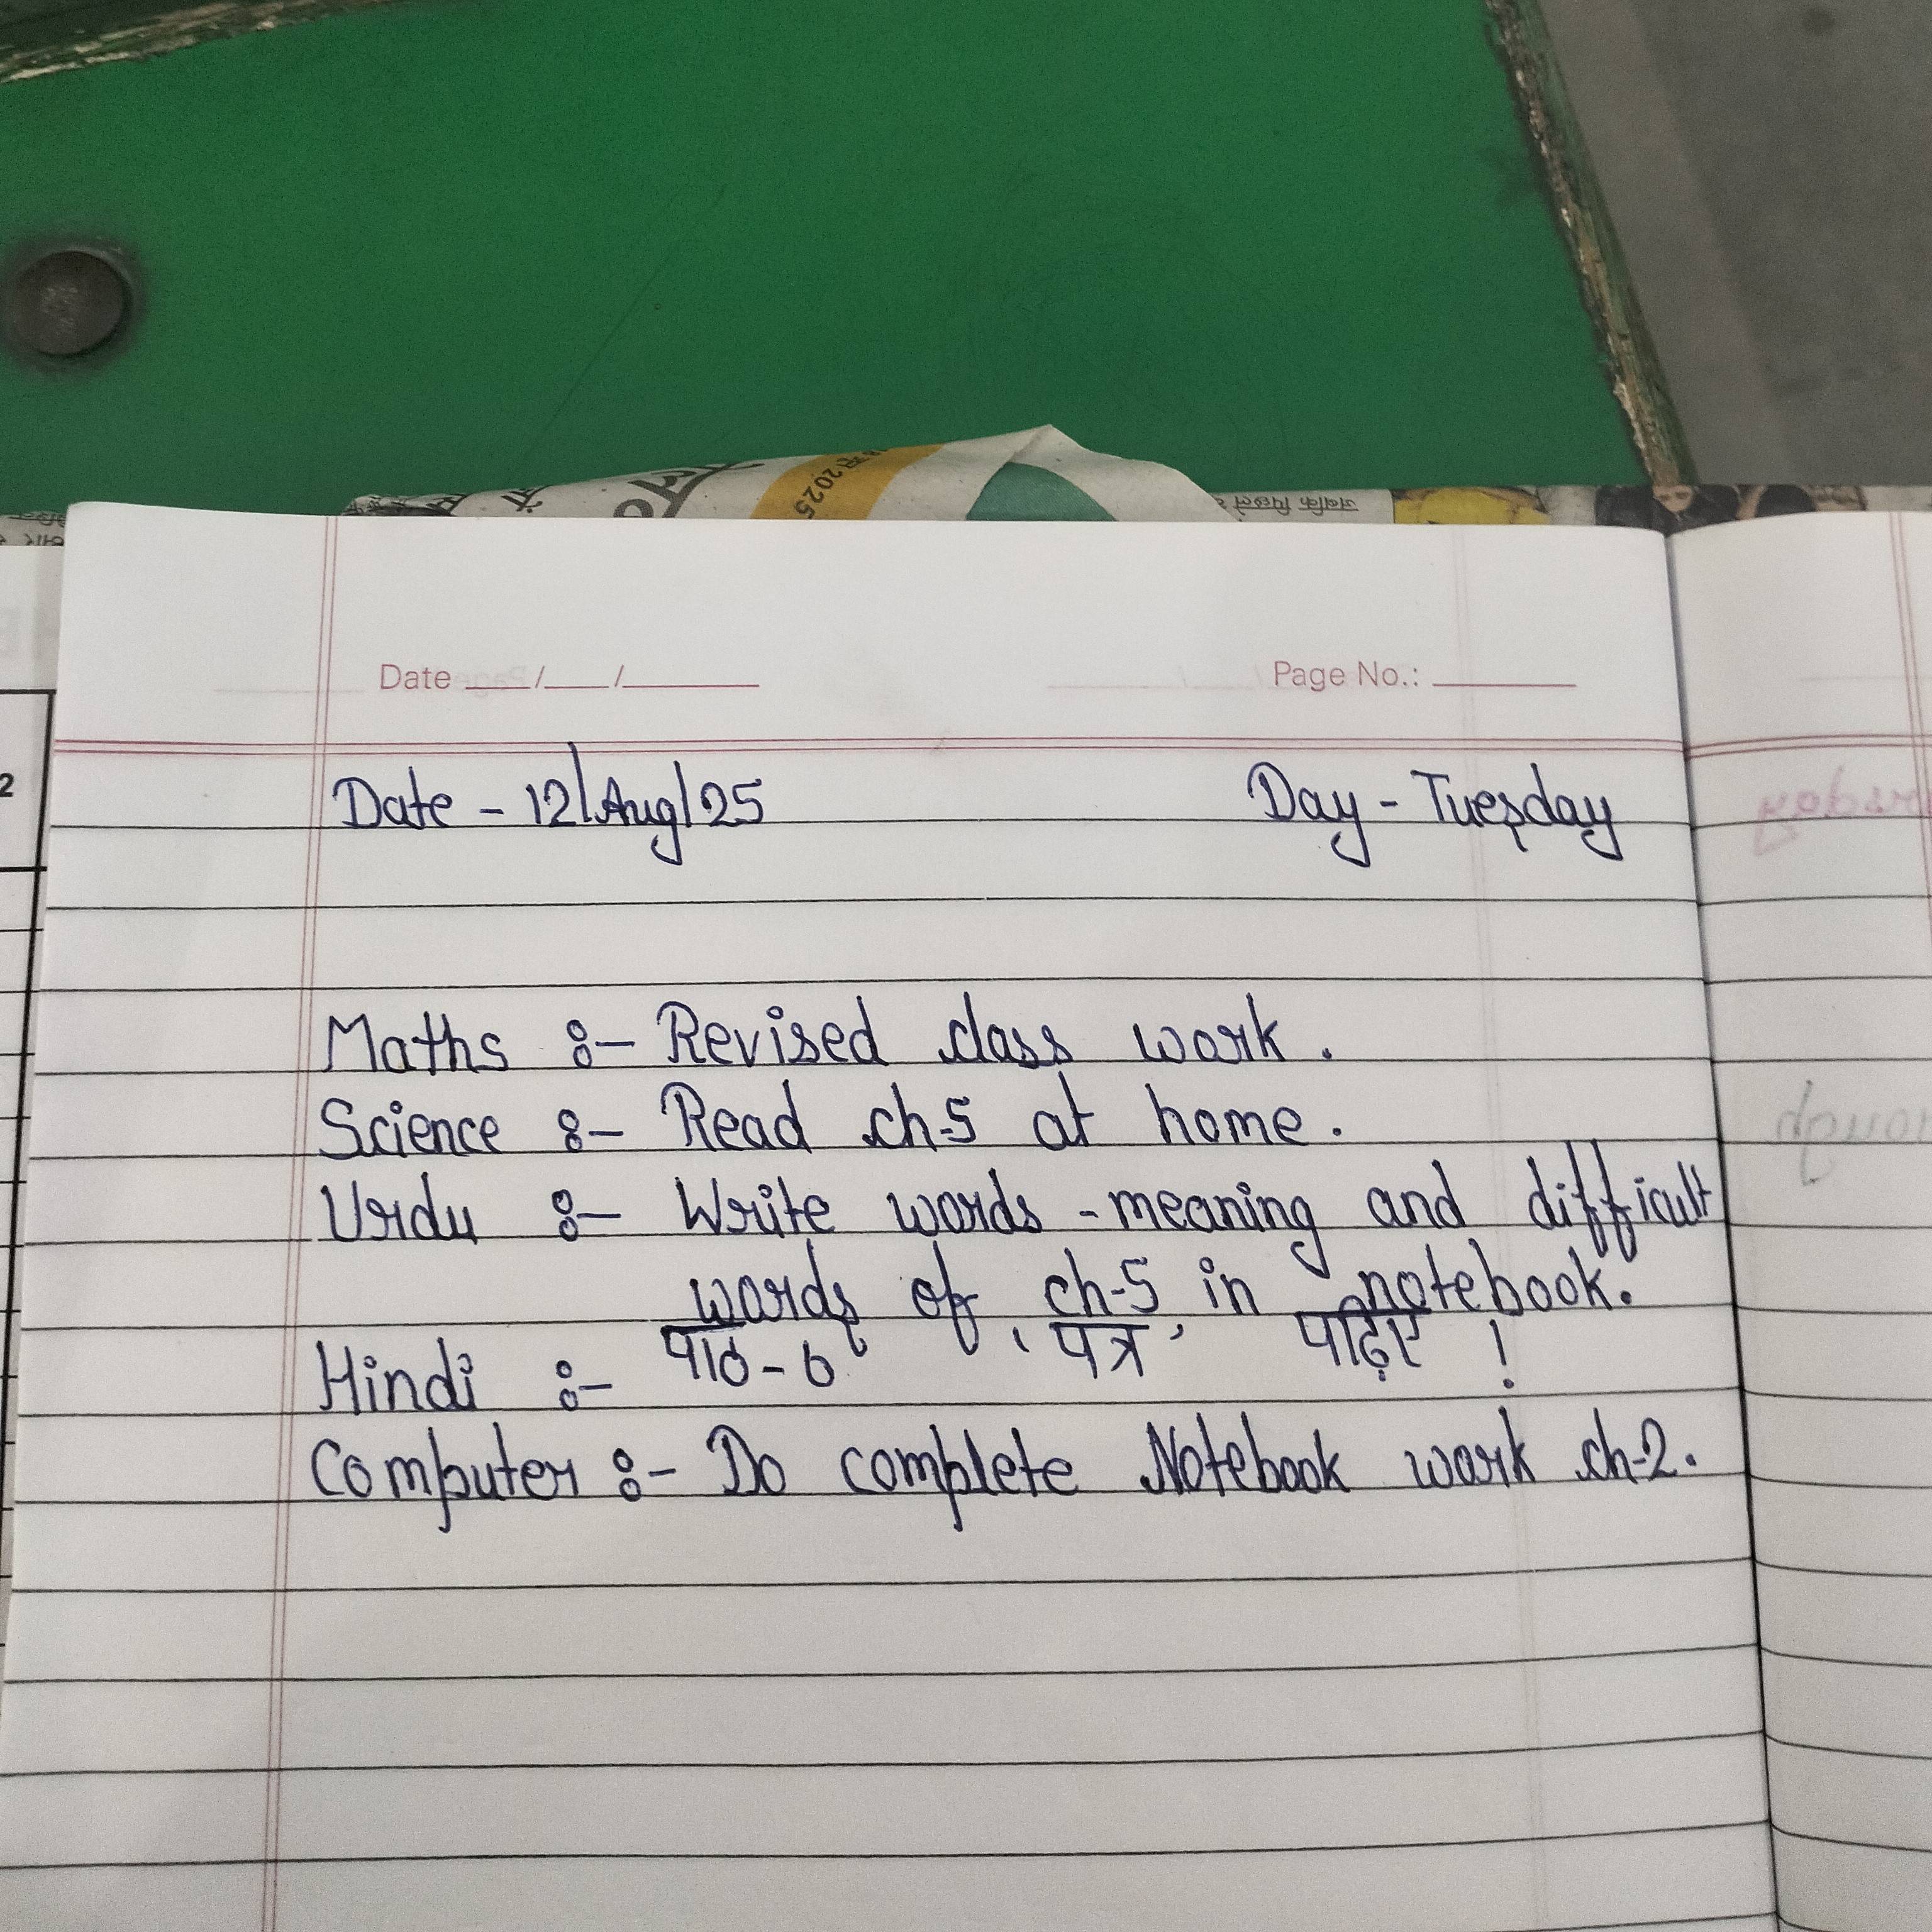 2025
जबकि पिछले
Date ___/___/______ Page No.: ______
Date - 12/Aug/25 Day - Tuesday
Maths :- Revised class work.
Science :- Read ch-5 at home.
Urdu :- Write words - meaning and difficult
words of ch-5 in notebook.
Hindi :- पाठ - 6 ' पत्र ' पढ़िए !
Computer :- Do complete Notebook work ch-2.
2